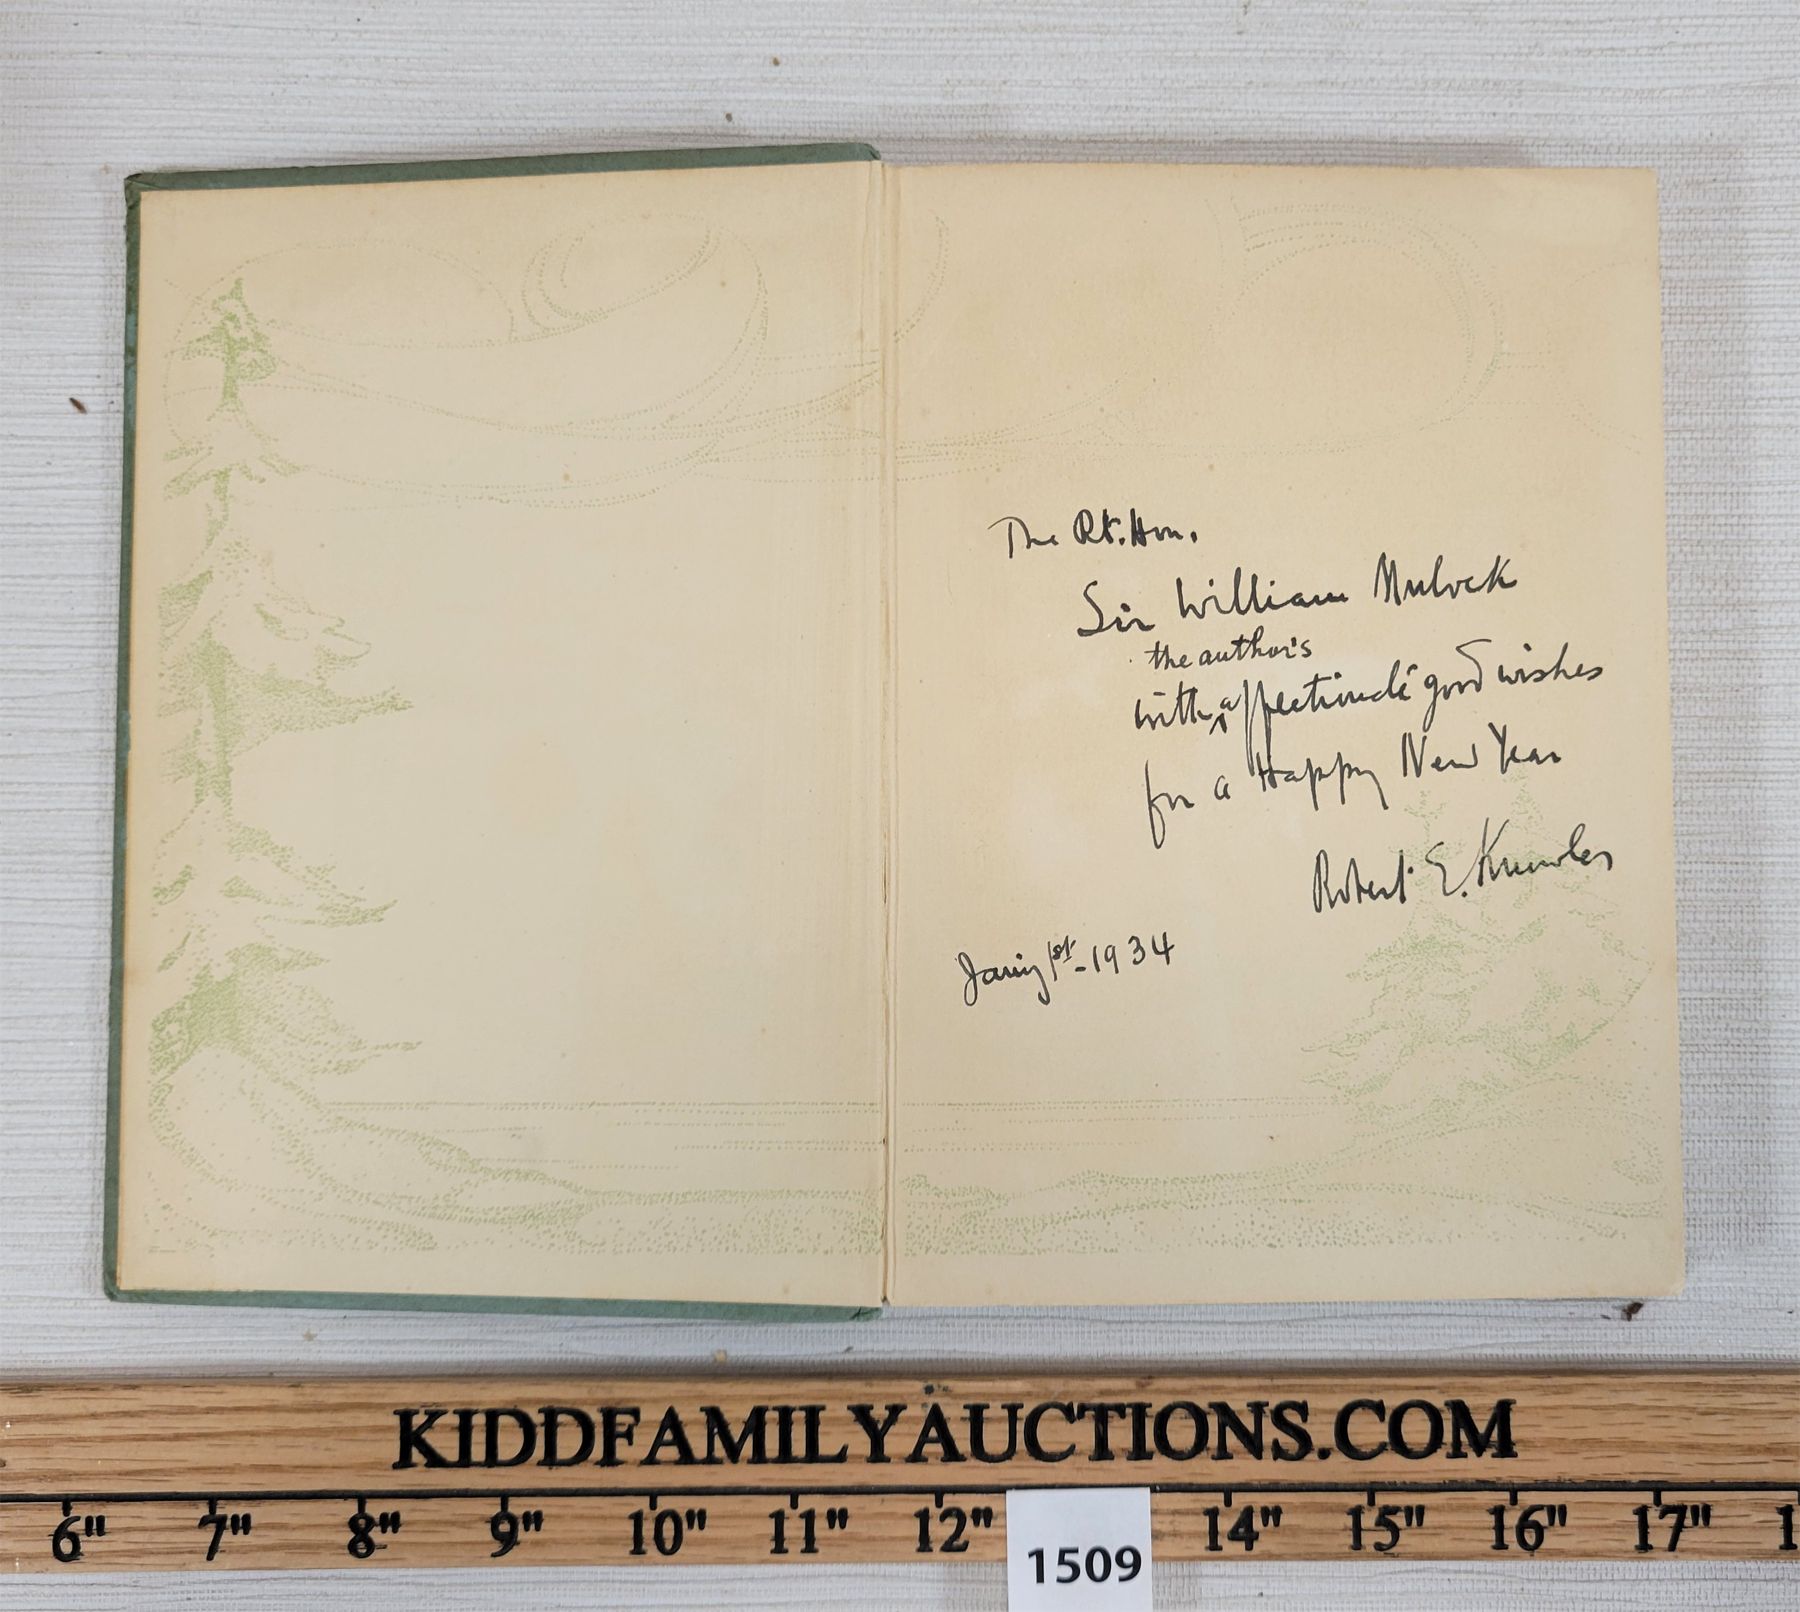 The Rt. Hon.
Sir William Mulock
the author's
with ^ affectionate good wishes
for a Happy New Year
Robert E. Knowles
Jan'y 1st - 1934
KIDDFAMILYAUCTIONS.COM
6" 7" 8" 9" 10" 11" 12" 14" 15" 16" 17" 1
1509